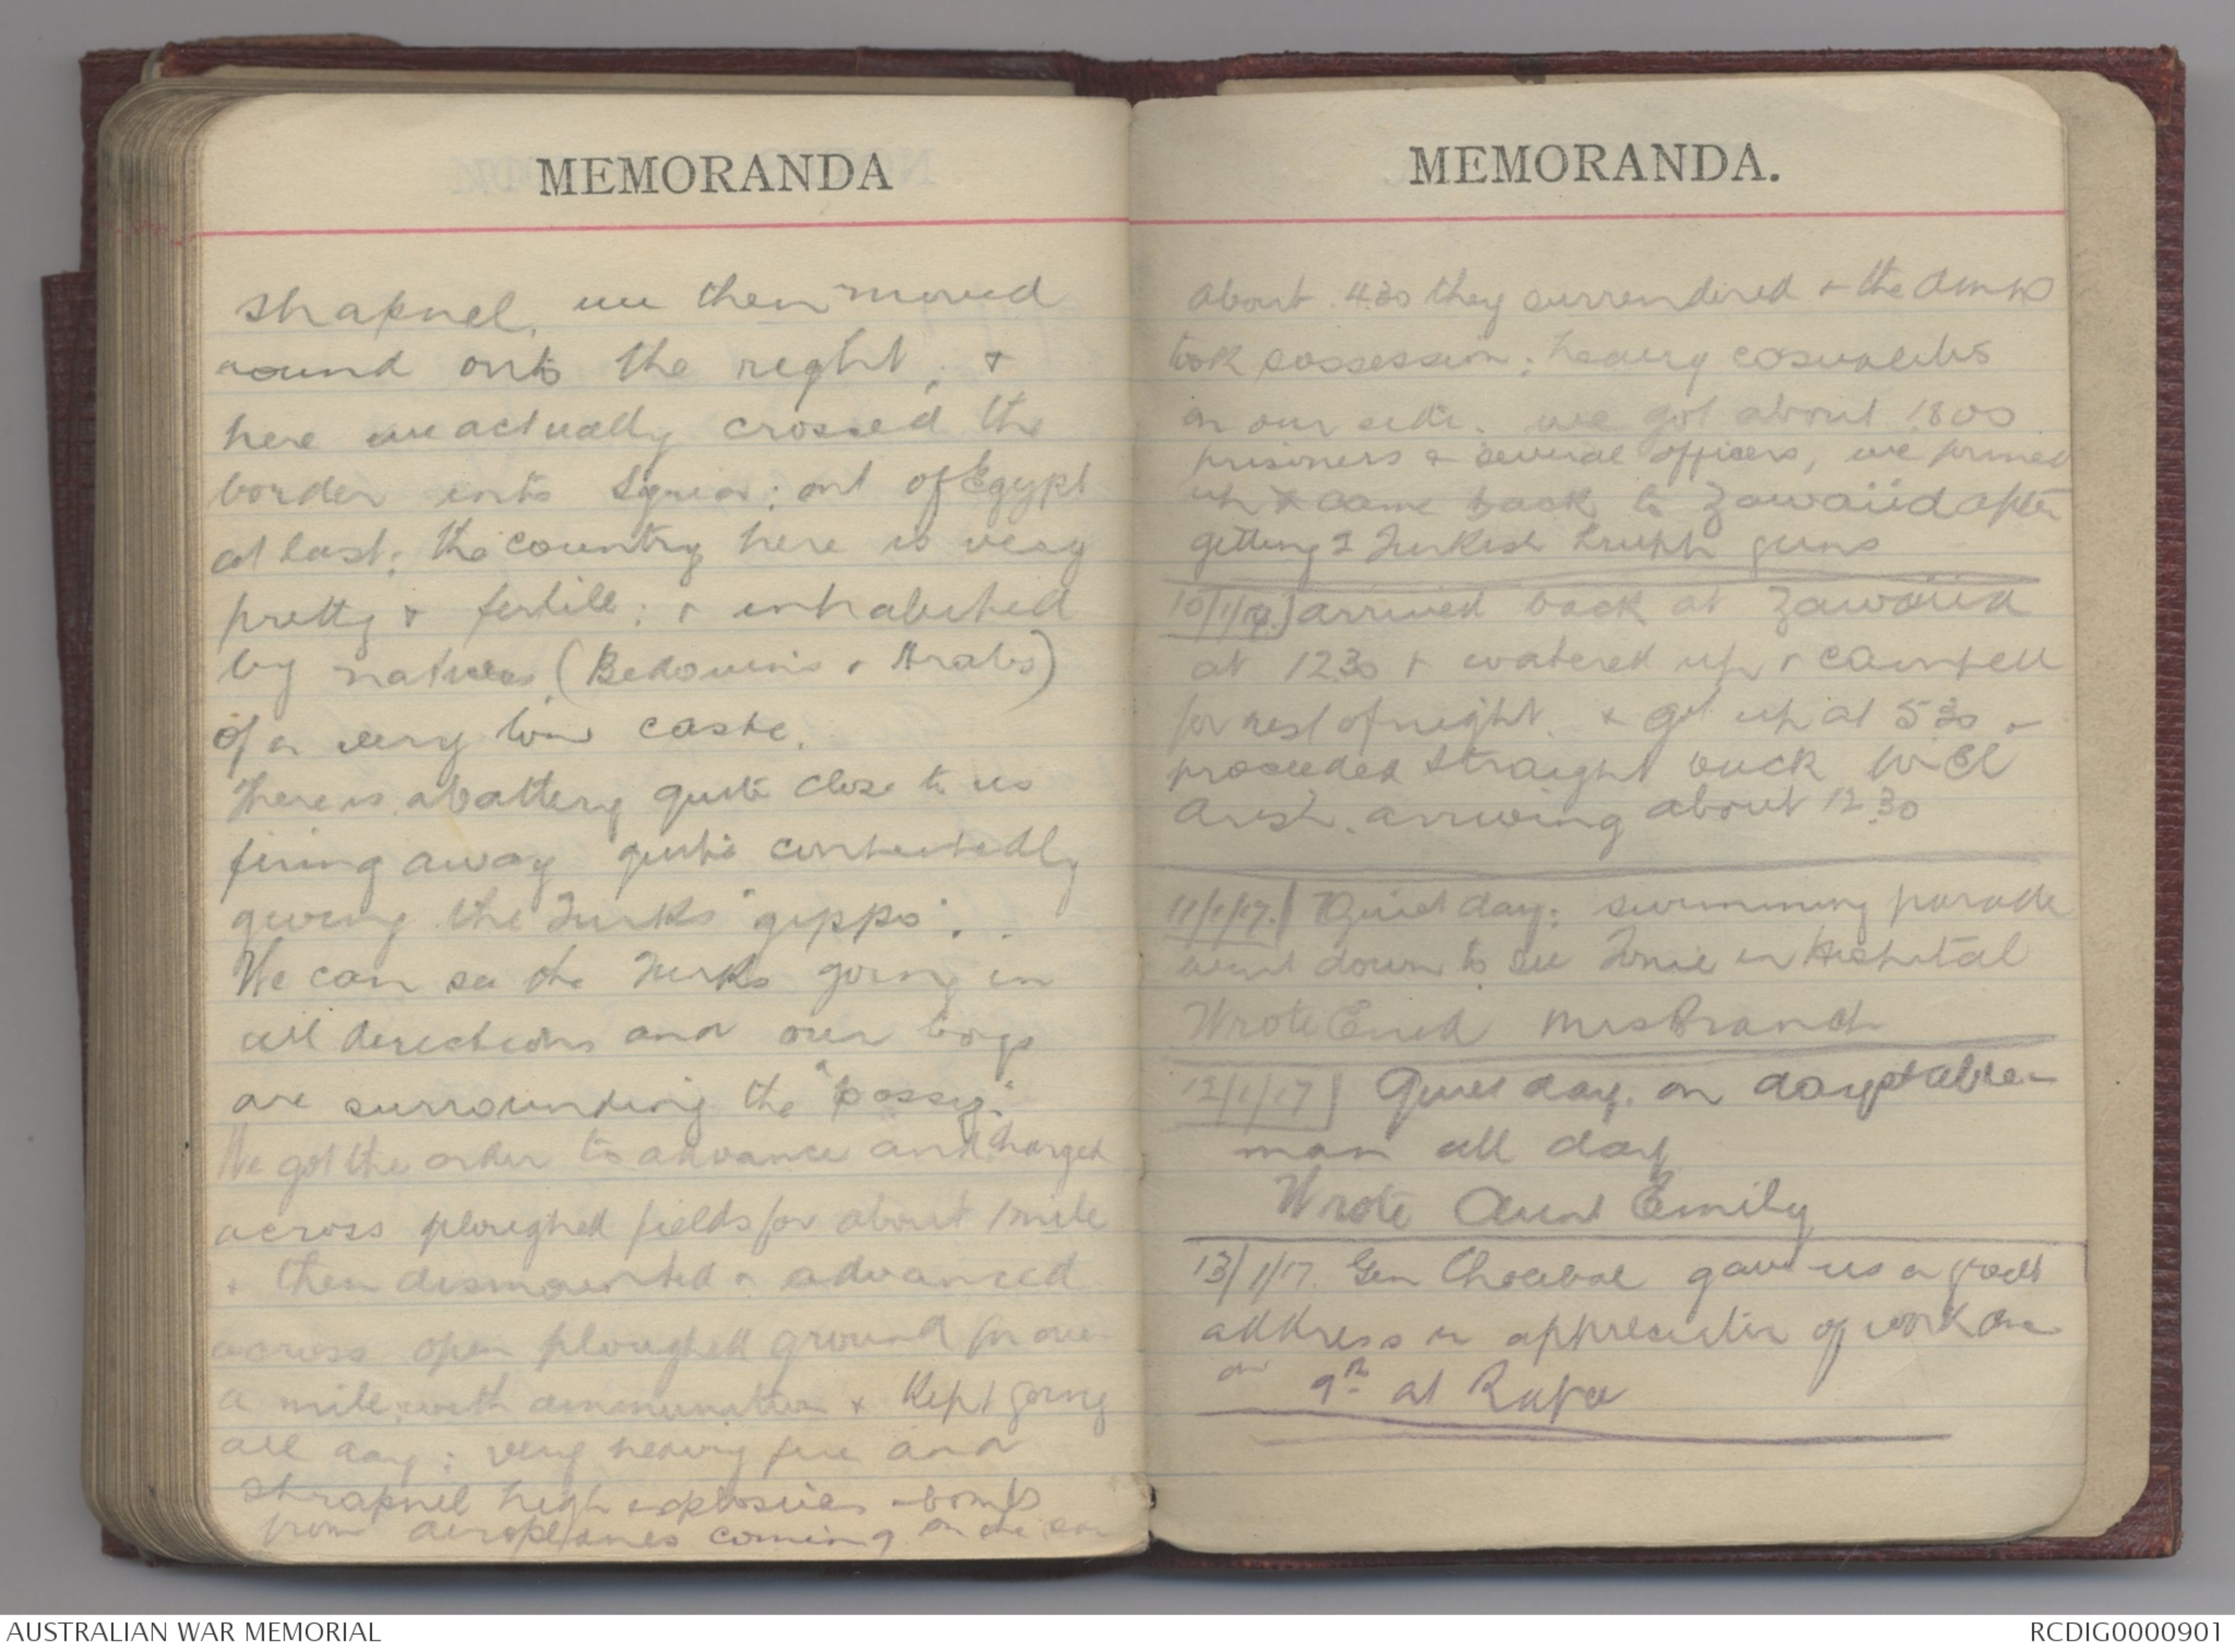 MEMORANDA
shrapnel, we then moved
round onto the right, &
here we actually crossed the
border into Syria; out of Egypt
at last; the country here is very
pretty & fertile; & inhabited
by natives (Bedouins & Arabs)
of a very low caste.
There is a battery quite close to us
firing away quite contentedly
giving the Turks "gippo".
We can see the Turks going in
all directions and our boys
are surrounding the "possy".
We got the order to advance and charged
across ploughed fields for about 1 mile
& then dismounted & advanced
across open ploughed ground for over
a mile with ammunition & kept going
all day; very heavy fire and
shrapnel high explosives & bombs
from aeroplanes coming on
MEMORANDA.
about 4.30 they surrendered & the
took possession; heavy casualties
on our side. we got about 1800
prisoners & several officers, we formed
up & came back to Zawaiid after
getting 2 Turkish Krupp guns
10/1/17.) arrived back at Zawaiid
at 1230 & watered up & camped
for rest of night. & got up at 530 &
proceeded straight back to El
Arish. arriving about 12.30
11/1/17.) Quiet day; swimming parade
went down to see in Hospital
Wrote Enid Mrs Branch
12/1/17) Quiet day. on day stable
man all day
Wrote Aunt Emily
13/1/17. Gen Chauvel gave us a good
address in appreciation of work done
on 9th at Rafa
AUSTRALIAN WAR MEMORIAL
RCDIG0000901